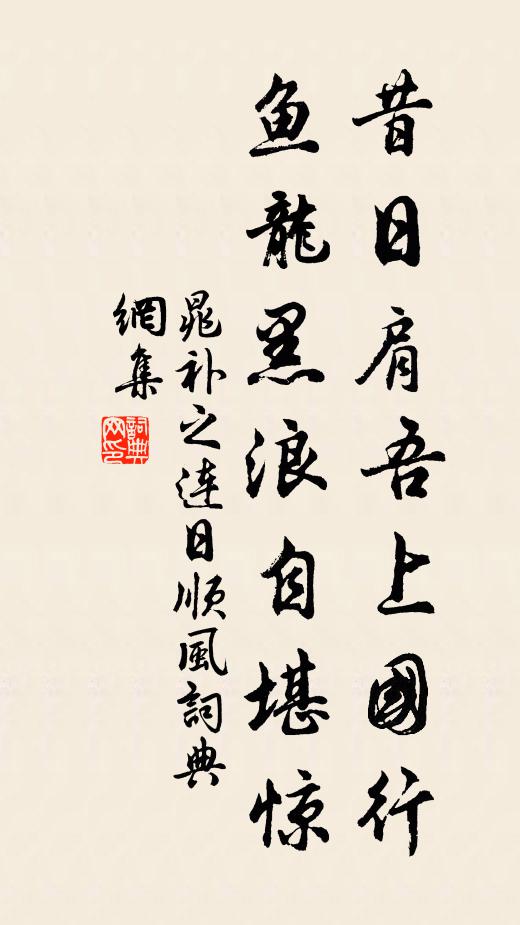 昔日肩吾上國行
鱼龍黑浪自堪惊
晁补之连日顺風詞典
網集
詞典
网印